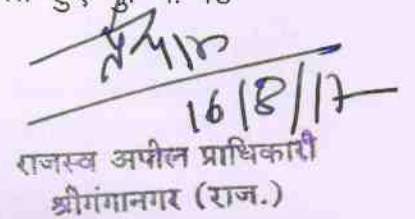 16/8/17
राजस्व अपील प्राधिकारी
श्रीगंगानगर (राज.)